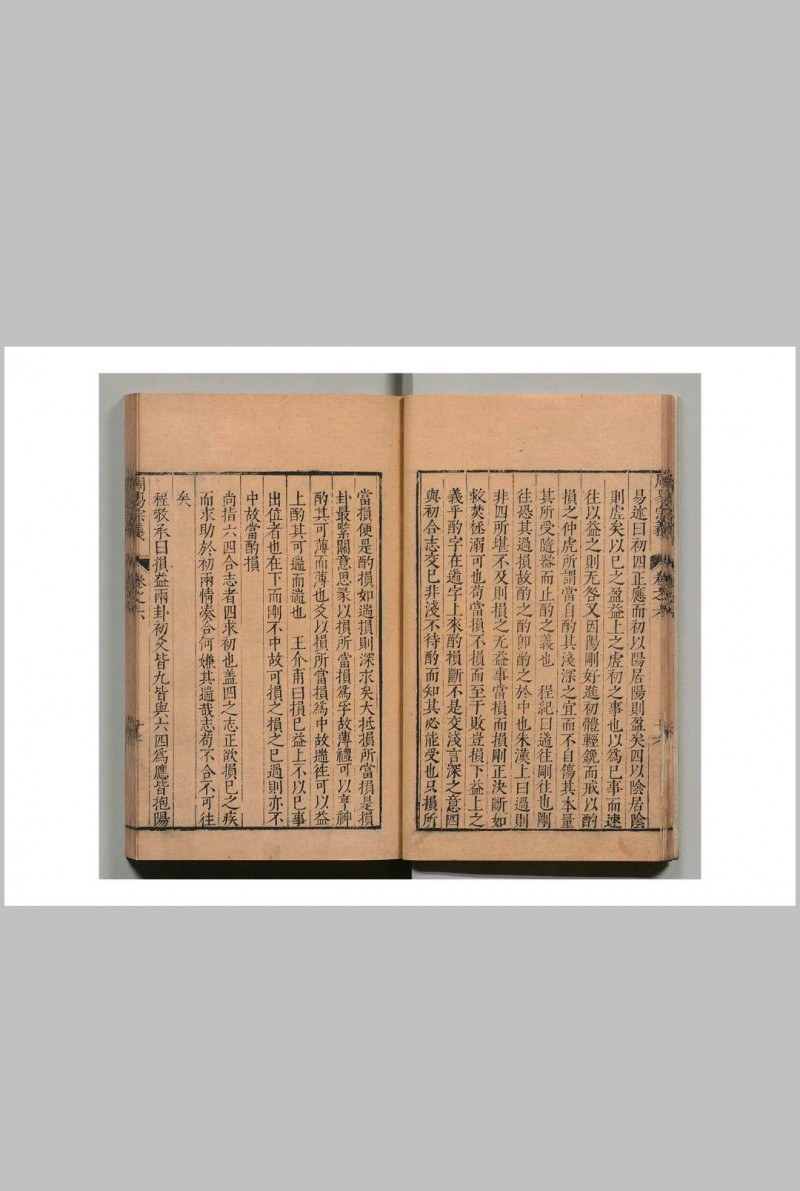 易述曰初四正應而初以陽居陽則盈矣四以陰居陰
則虛矣以已之盈益上之虛初之事也以爲已事而速
往以益之則无咎又因陽剛好進初體輕銳而戒以酌
損之仲虎所謂當自酌其淺深之宜而不自傷其本量
其所受隨器而止酌之義也 程紀曰遄往剛往也剛
往恐其過損故酌之酌卽酌之於中也朱漢上曰過則
非四所堪不及則損之无益事當損而損剛正決斷如
救焚拯溺可也苟當損不損而至于敗豈損下益上之
義乎酌字在遄字上來酌損斷不是交淺言深之意四
與初合志交已非淺不待酌而知其必能受也只損所
周易宗義 卷之六
當損便是酌損如遄損則深求矣大抵損所當損是損
卦最緊關意思彖以損所當損爲字故薄禮可以亨神
酌其可薄而薄也爻以損所當損爲中故遄徃可以益
上酌其可遄而遄也 王介甫曰損已益上不以已事
出位者也在下而剛不中故可損之損之已過則亦不
中故當酌損
尚指六四合志者四求初也蓋四之志正欲損已之疾
而求助於初兩情凑合何嫌其遄哉志苟不合不可往
矣
程敬承曰損益兩卦初爻皆九皆與六四爲應皆抱陽
周易宗義 卷之六